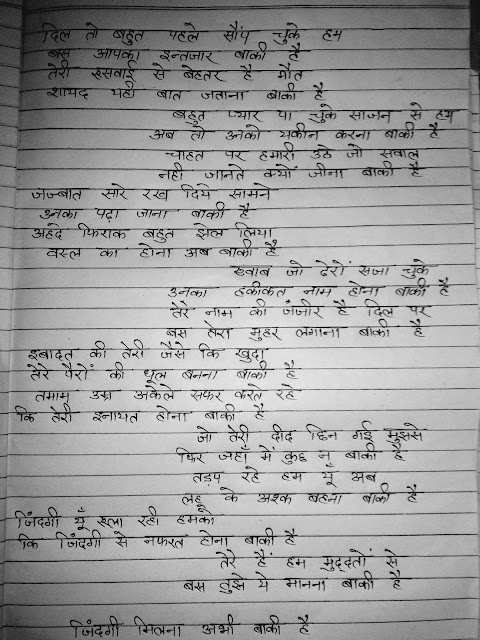 दिल तो बहुत पहले सौंप चुके हम
बस आपका इन्तजार बाकी है
तेरी रुसवाई से बेहतर है मौत
शायद यही बात जताना बाकी है
बहुत प्यार पा चुके साजन से हम
अब तो उनको यकीन करना बाकी है
चाहत पर हमारी उठे जो सवाल
नही जानते क्यों जीना बाकी है
जज्बात सारे रख दिये सामने
उनका पढ़ा जाना बाकी है
अहदे फिराक बहुत झेल लिया
वस्ल का होना अब बाकी है
ख्वाब जो ढेरों सजा चुके
उनका हकीकत नाम होना बाकी है
तेरे नाम की जंजीर है दिल पर
बस तेरा मुहर लगाना बाकी है
इबादत की तेरी जैसे कि खुदा
तेरे पैरों की धूल बनना बाकी है
तमाम उम्र अकेले सफर करते रहे
कि तेरी इनायत होना बाकी है
जो तेरी दीद छिन गई मुझसे
फिर जहाँ में कुछ न बाकी है
तड़प रहे हम यूँ अब
लहू के अश्क बहना बाकी है
जिंदगी यूँ रुला रही हमको
कि जिंदगी से नफरत होना बाकी है
तेरे हैं हम मुददतों से
बस तुझे ये मानना बाकी है
जिंदगी मिलना अभी बाकी है